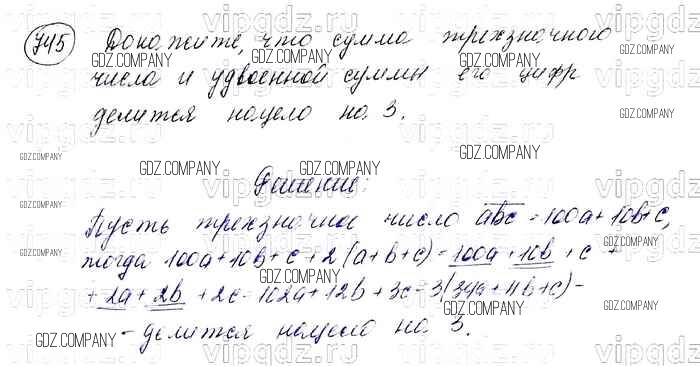 745 Докажите, что сумма трехзначного
числа и удвоенной суммы его цифр
делится нацело на 3.
Решение:
Пусть трехзначное число abc = 100a + 10b + c,
тогда 100a + 10b + c + 2(a + b + c) = 100a + 10b + c +
+ 2a + 2b + 2c = 102a + 12b + 3c = 3(34a + 4b + c) -
- делится нацело на 3.
GDZ.COMPANY
vipgdz.ru